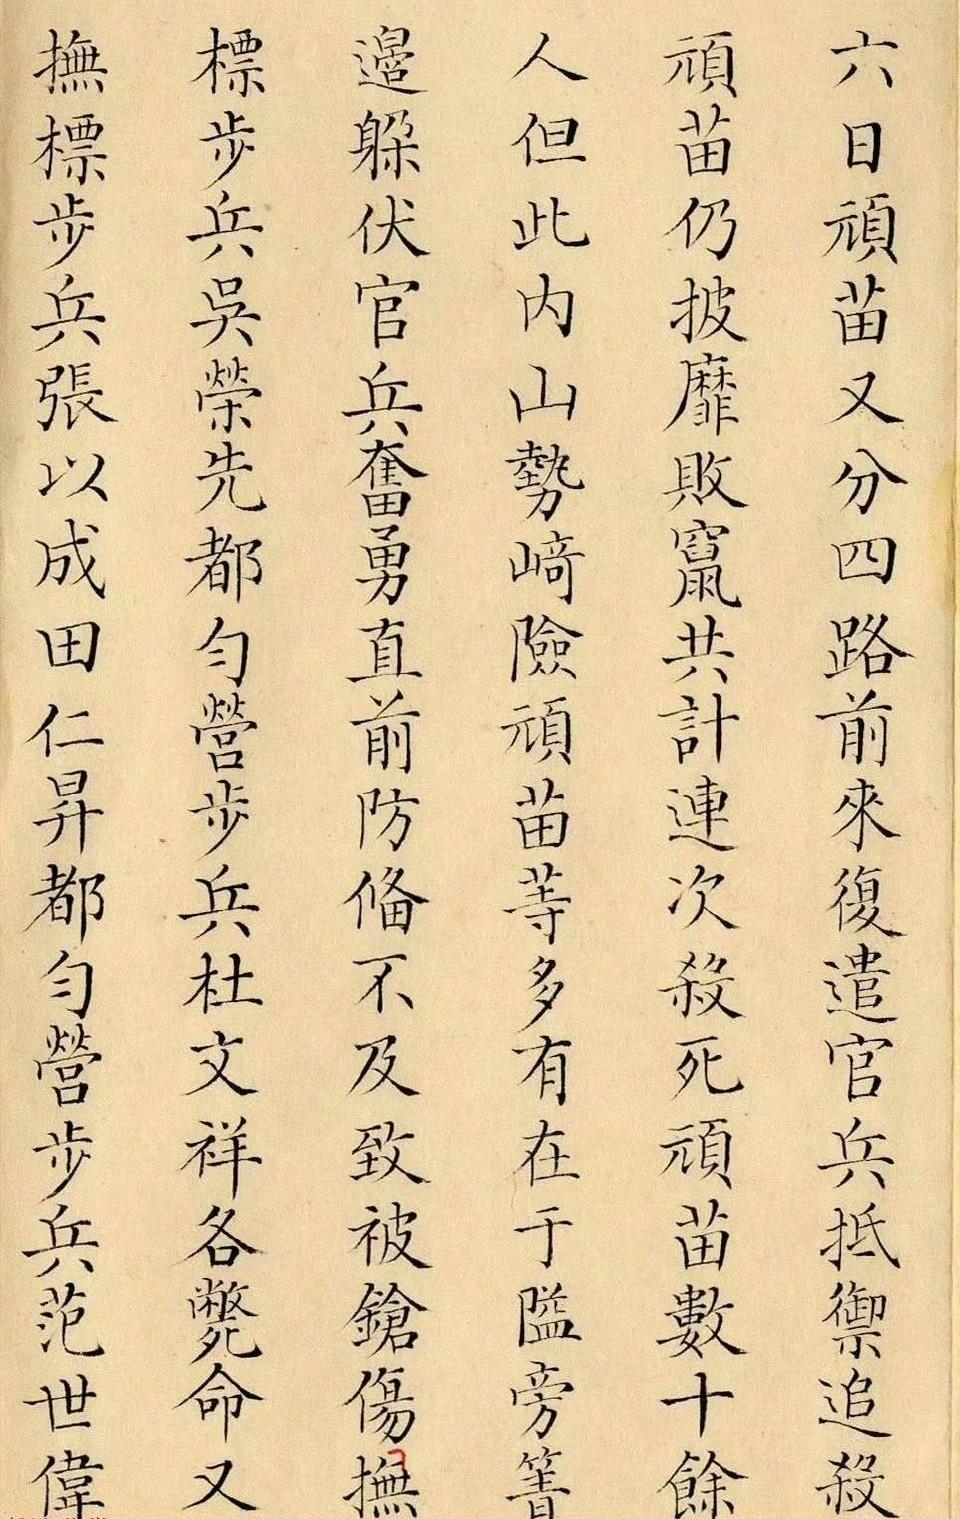 六日頑苗又分四路前來復遣官兵抵禦追殺
頑苗仍披靡敗竄共計連次殺死頑苗數十餘
人但此內山勢崎險頑苗等多有在于隘旁箐
邊躲伏官兵奮勇直前防備不及致被鎗傷撫
標步兵吳榮先都勻營步兵杜文祥各斃命又
撫標步兵張以成田仁昇都勻營步兵范世偉